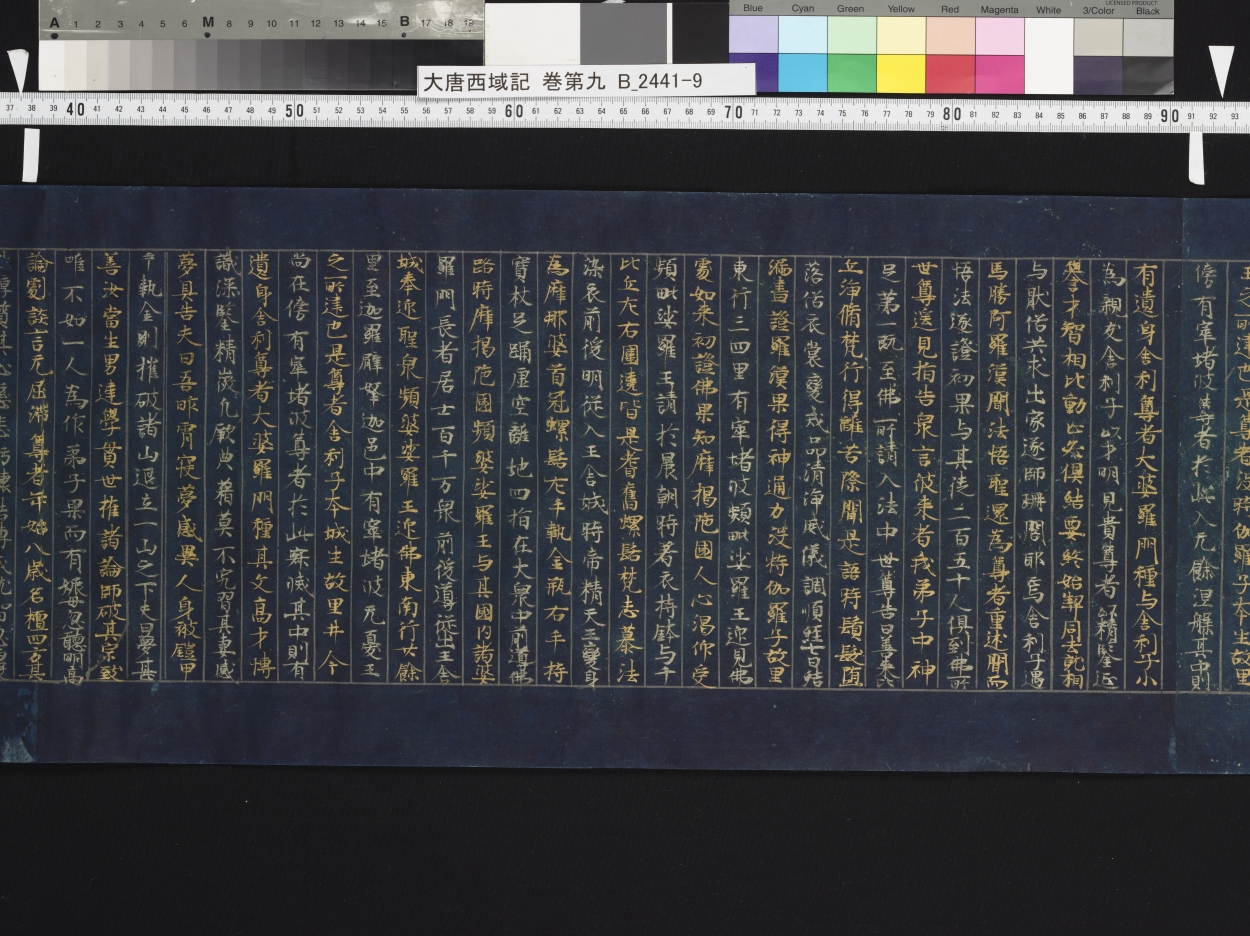 A 1 2 3 4 5 6 M 8 9 10 11 12 13 14 15 B 17 18 19
Blue Cyan Green Yellow Red Magenta White 3/Color Black
LICENSED PRODUCT
大唐西域記 巻第九 B_2441-9
37 38 39 40 41 42 43 44 45 46 47 48 49 50 51 52 53 54 55 56 57 58 59 60 61 62 63 64 65 66 67 68 69 70 71 72 73 74 75 76 77 78 79 80 81 82 83 84 85 86 87 88 89 90 91 92 93
之所達也是尊者没特伽羅子本生故里
傍有窣堵波尊者於此入无餘涅槃其中則
有遺身舍利尊者大婆羅門種与舍利子小
為親友舍利子以才明見貴尊者以精鑒延
譽才智相比動止必俱結要終始契同去就相
与猒俗共求出家遂師珊闍耶焉舍利子遇
馬勝阿羅漢聞法悟聖還為尊者重述聞而
悟法遂證初果与其徒二百五十人俱到佛所
世尊遥見指告衆言彼来者我弟子中神
足第一既至佛所請入法中世尊告曰善来苾
丘淨脩梵行得離苦際聞是語時鬚髮墮
落俗衣裳變戒品清淨威儀調順經七日結
漏盡證羅漢果得神通力没特伽羅子故里
東行三四里有窣堵波頻毗娑羅王迎見佛
處如来初證佛果知摩揭陁國人心渇仰受
頻毗娑羅王請於晨朝時着衣持鉢与千
比丘左右圍遶皆是耆舊螺髻梵志慕法
染衣前後明從入王舍城時帝釋天王變身
為摩那婆首冠螺髻左手執金瓶右手持
寶杖足蹈虚空離地四指在大衆中前導佛
路時摩揭陁國頻毗娑羅王与其國内諸婆
羅門長者居士百千万衆前後導從出王舍
城奉迎聖衆頻毗娑羅王迎佛東南行廿餘
里至迦羅臂拏迦邑中有窣堵波无憂王
之所達也是尊者舍利子本城生故里井今
尚在傍有窣堵波尊者於此寂滅其中則有
遺身舍利尊者大婆羅門種其父高才博
識深鑒精微凡厥典籍莫不究習其妻感
夢具告夫曰吾昨宵寝夢感異人身被鎧甲
手執金剛摧破諸山退立一山之下夫曰夢甚
善汝當生男達學貫世摧諸論師破其宗致
唯不如一人為作弟子果而有娠母忽聰明高
論劇談言无屈滯尊者年始八歳名擅四方其